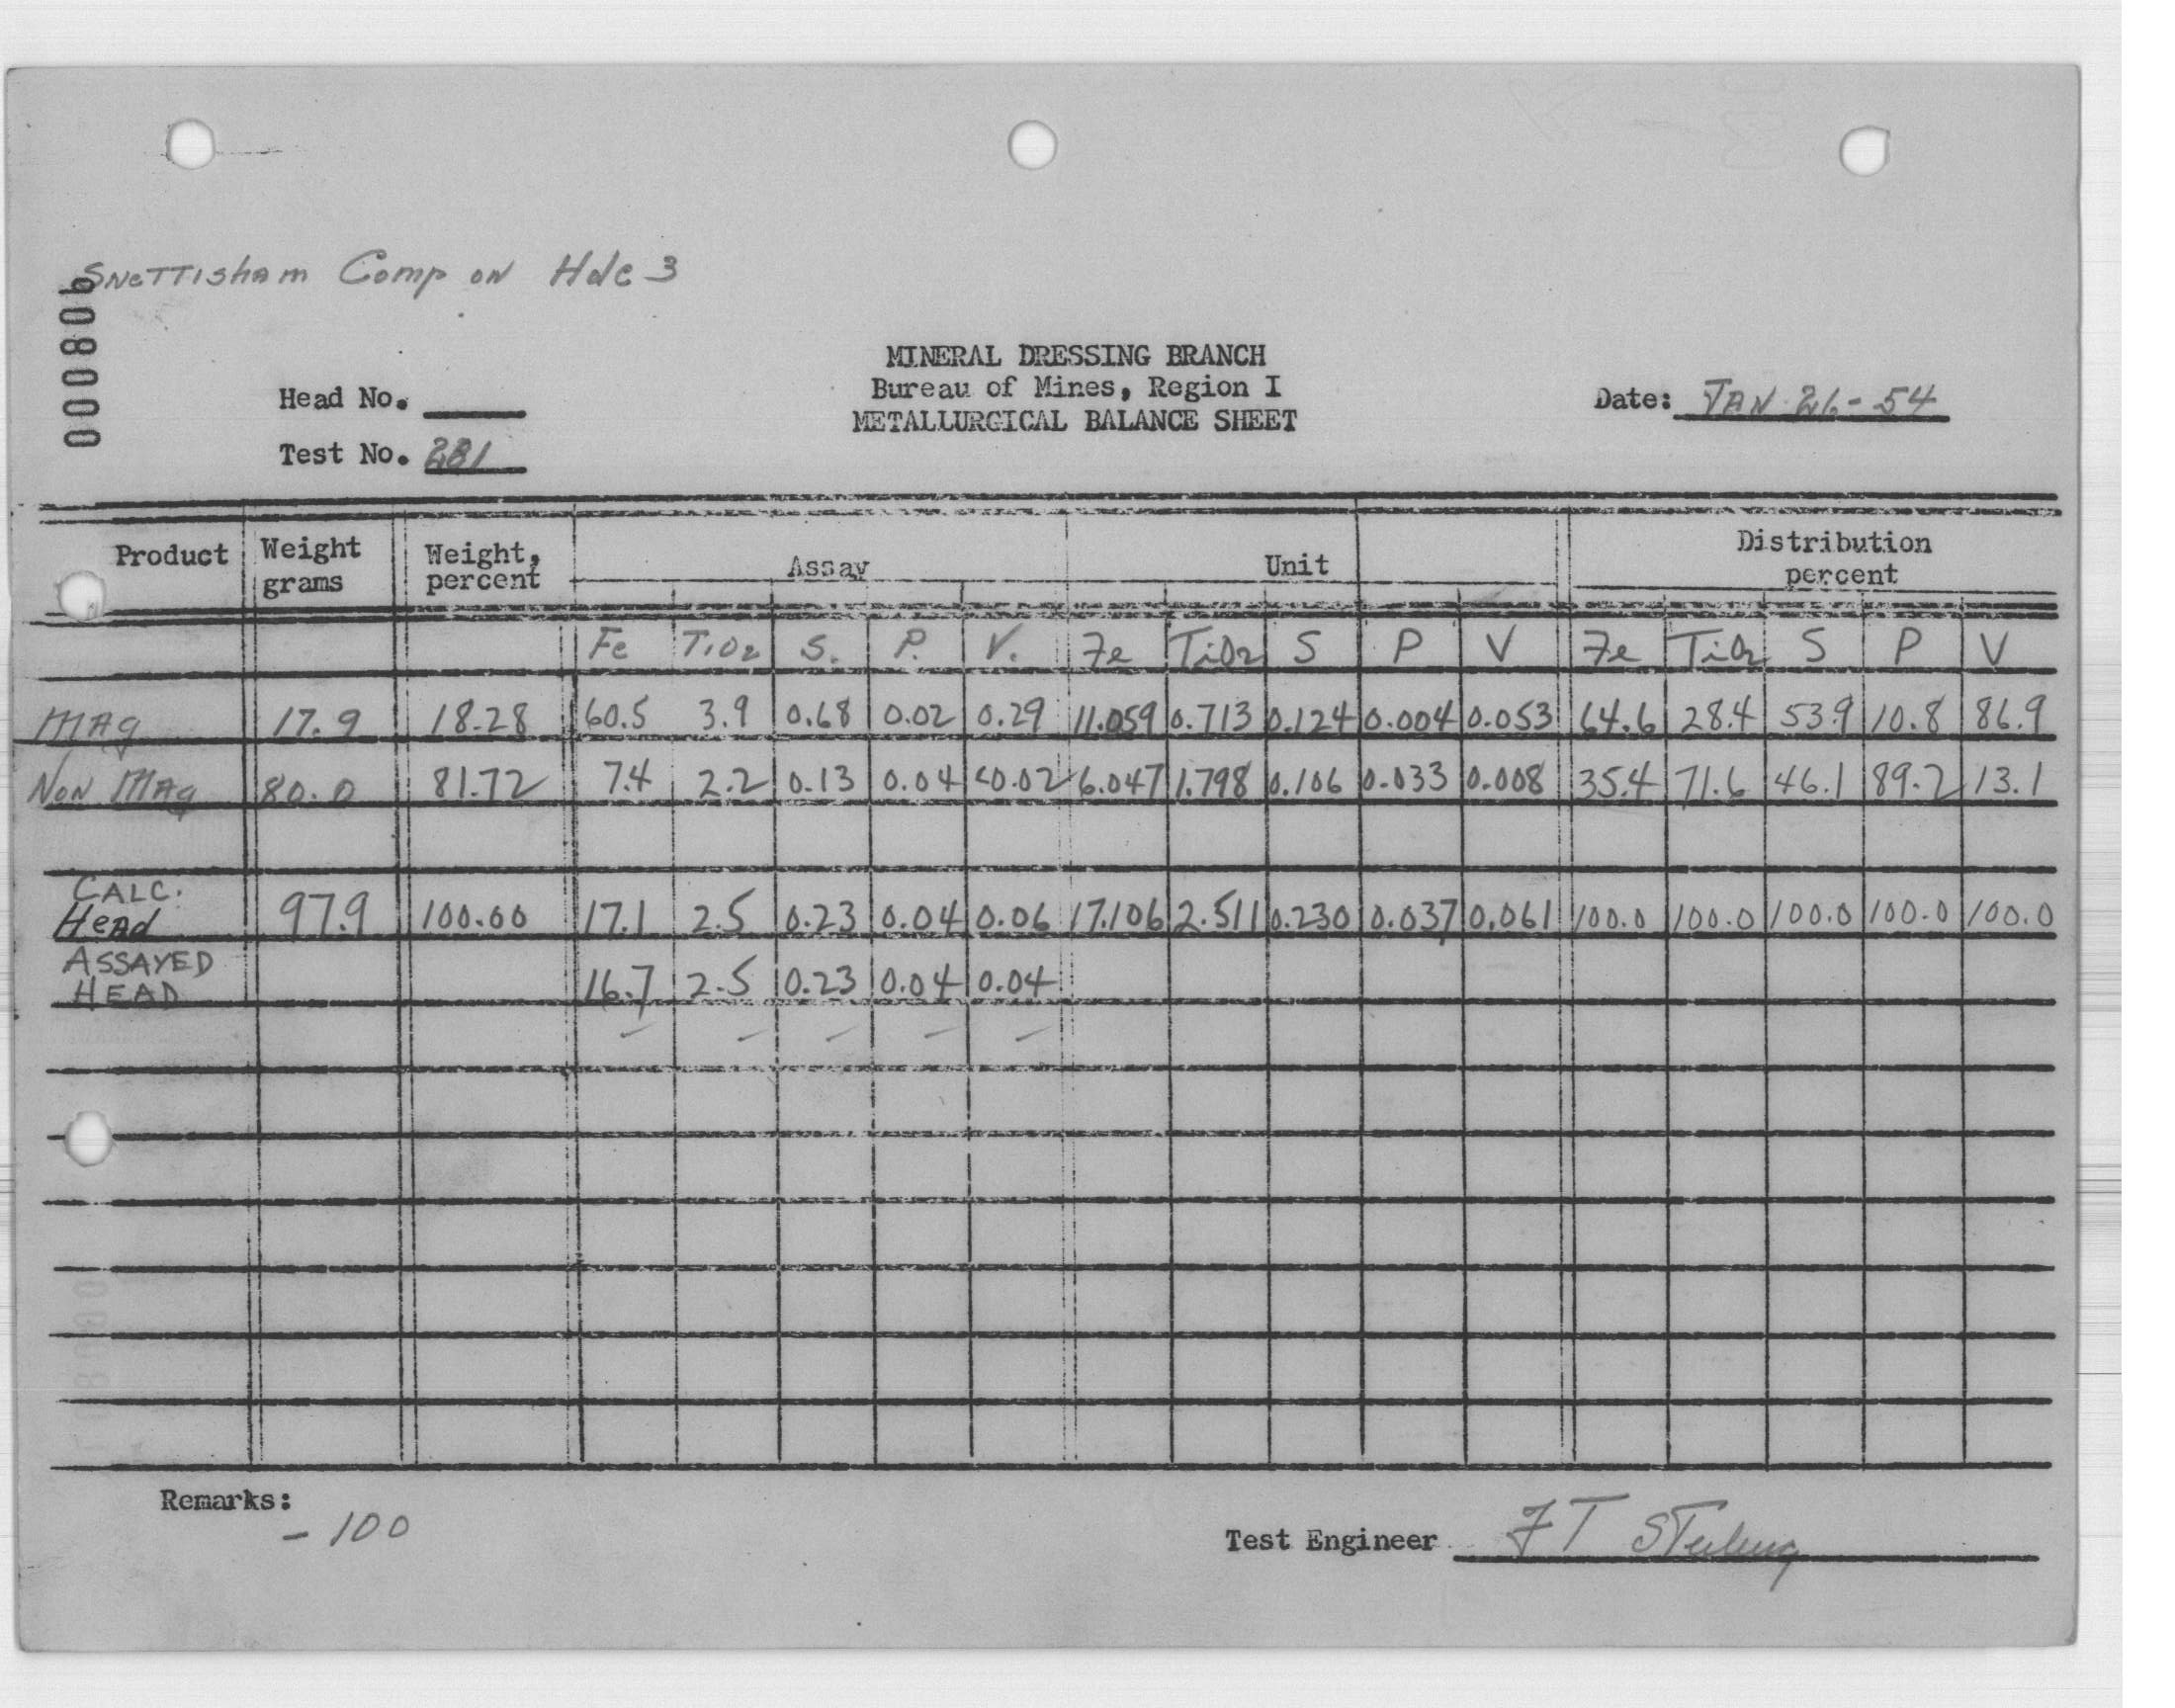 Snettisham Comp on Hole 3
000806
MINERAL DRESSING BRANCH
Bureau of Mines, Region I
METALLURGICAL BALANCE SHEET
Head No.
Test No. 281
Date: JAN 26-54
Product Weight grams Weight, percent Assay Unit Distribution percent
Fe TiO2 S. P. V. Fe TiO2 S P V Fe TiO2 S P V
MAg 17.9 18.28 60.5 3.9 0.68 0.02 0.29 11.059 0.713 0.124 0.004 0.053 64.6 28.4 53.9 10.8 86.9
NoN MAg 80.0 81.72 7.4 2.2 0.13 0.04 <0.02 6.047 1.798 0.106 0.033 0.008 35.4 71.6 46.1 89.2 13.1
CALC. HeAd 97.9 100.00 17.1 2.5 0.23 0.04 0.06 17.106 2.511 0.230 0.037 0.061 100.0 100.0 100.0 100.0 100.0
ASSAYED HEAD 16.7 2.5 0.23 0.04 0.04
Remarks:
- 100
Test Engineer FT